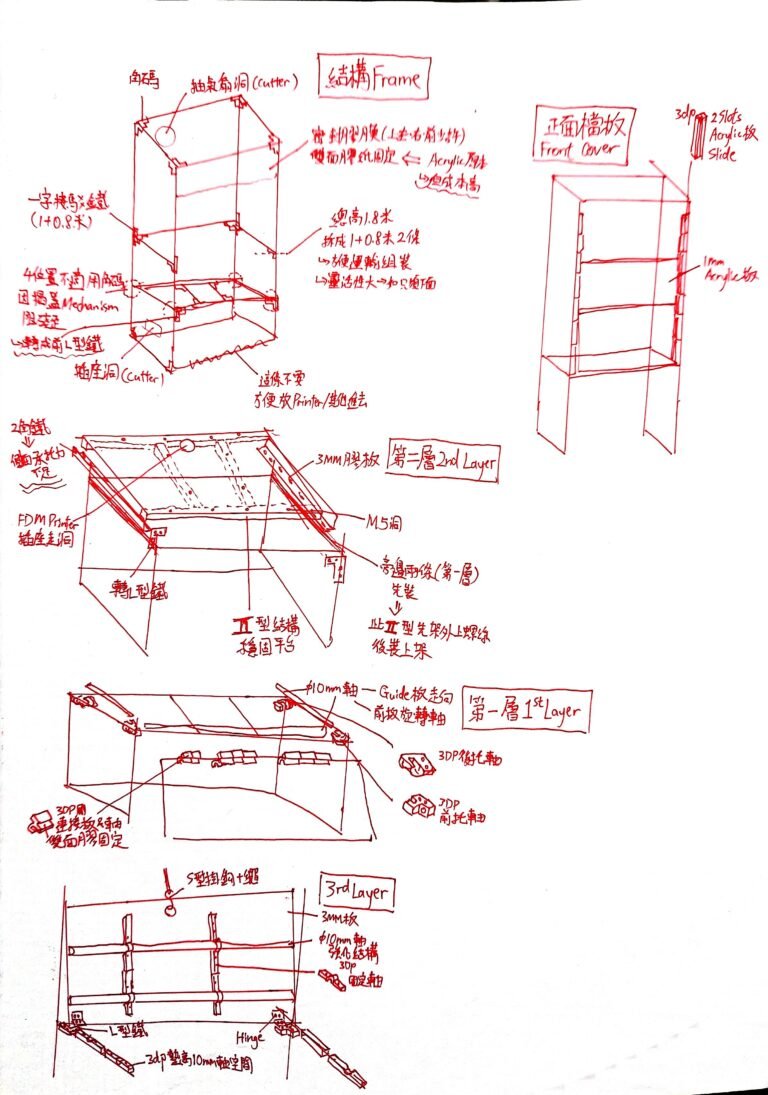 結構Frame
角碼
抽氣扇洞(cutter)
密封膠膜(上左右前
雙面膠紙固定 ⇐ Acrylic
成本高
一字接馬
(1+0.8米)
總高1.8米
拆成1+0.8米2條
↳方便運輸組裝
↳靈活性大
4位置不適用角碼
因揭蓋Mechanism
↳轉成用L型鐵
插座洞(cutter)
這條不要
方便放Printer
正面檔板
Front Cover
3dp
2 Slots
Acrylic板
Slide
1mm
Acrylic板
第二層2nd Layer
2角鐵
側面承托力
不足
3MM膠板
FDM Printer
插座走洞
M5洞
轉L型鐵
II型結構
穩固平台
旁邊兩條(第一層)
先裝
此II型先架外上螺絲
後裝上架
第一層1st Layer
φ10mm軸 — Guide板走向
前板旋轉軸
3DP後托軸
3DP
前托軸
3DP用
連接板&軸
雙面膠固定
3rd Layer
S型掛鈎+繩
3MM板
φ10mm軸
強化結構
3DP
固定軸
L型鐵
Hinge
3dp墊高10mm軸空間